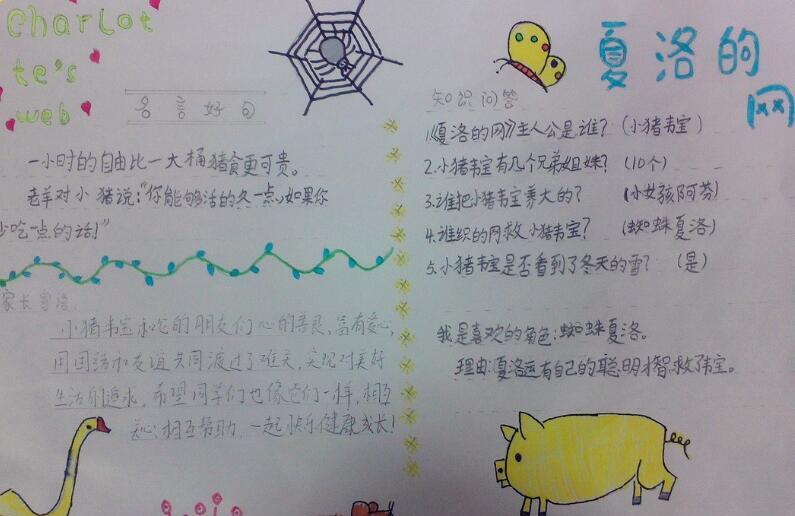 Charlot
te's
web
名言好句
一小时的自由比一大桶猪食更可贵。
老羊对小猪说:"你能够活的久一点,如果你
少吃一点的话!"
家长寄语
小猪韦宝和它的朋友们心的善良,富有爱心,
用团结和友谊共同渡过了难关,实现对美好
生活的追求,希望同学们也像它们一样,相互
关心,相互帮助,一起快乐健康成长!
夏洛的
网
知识问答
1.《夏洛的网》主人公是谁?(小猪韦宝)
2.小猪韦宝有几个兄弟姐妹?(10个)
3.谁把小猪韦宝养大的?(小女孩阿芬)
4.谁织的网救小猪韦宝?(蜘蛛夏洛)
5.小猪韦宝是否看到了冬天的雪?(是)
我是喜欢的角色:蜘蛛夏洛。
理由:夏洛运有自己的聪明才智救了韦宝。